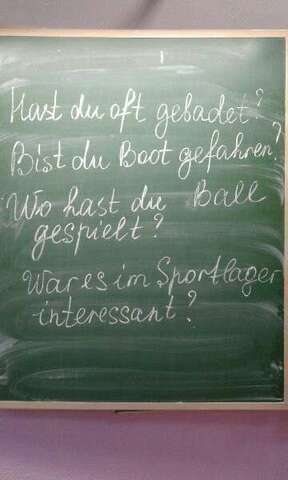 Hast du oft gebadet?
Bist du Boot gefahren?
Wo hast du Ball
gespielt?
War es im Sportlager
interessant?